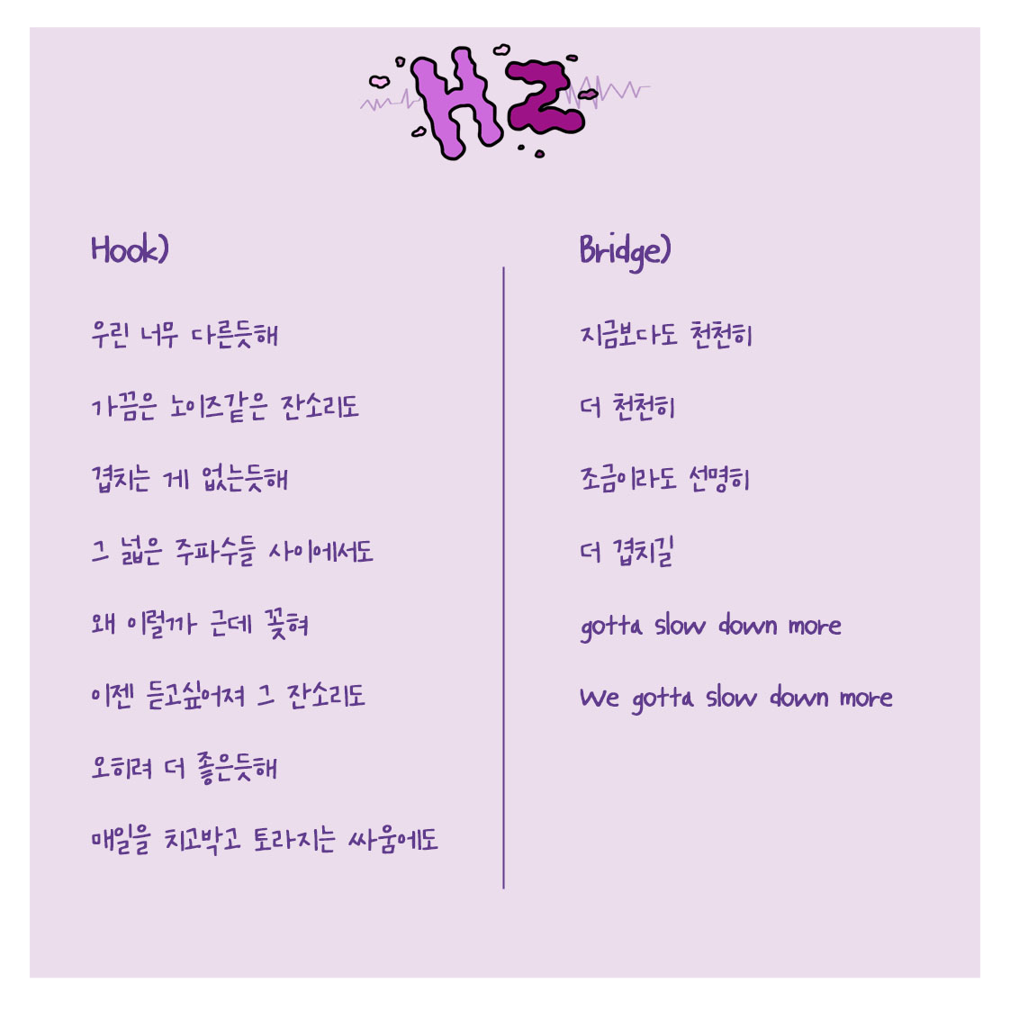 HZ
Hook)
우린 너무 다른듯해
가끔은 노이즈같은 잔소리도
겹치는 게 없는듯해
그 넓은 주파수들 사이에서도
왜 이럴까 근데 꽂혀
이젠 듣고싶어져 그 잔소리도
오히려 더 좋은듯해
매일을 치고박고 토라지는 싸움에도
Bridge)
지금보다도 천천히
더 천천히
조금이라도 선명히
더 겹치길
gotta slow down more
We gotta slow down more